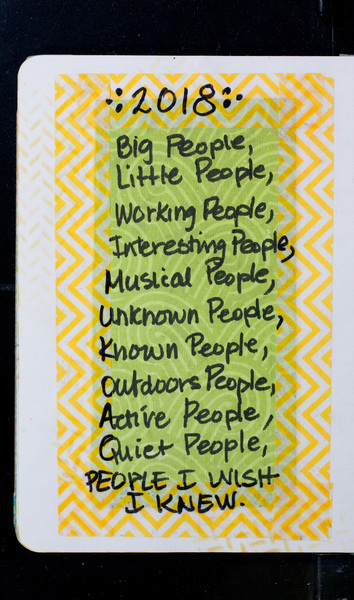 2018
Big People,
Little People,
Working People,
Interesting People,
Musical People,
Unknown People,
Known People,
Outdoors People,
Active People,
Quiet People,
PEOPLE I WISH
I KNEW.